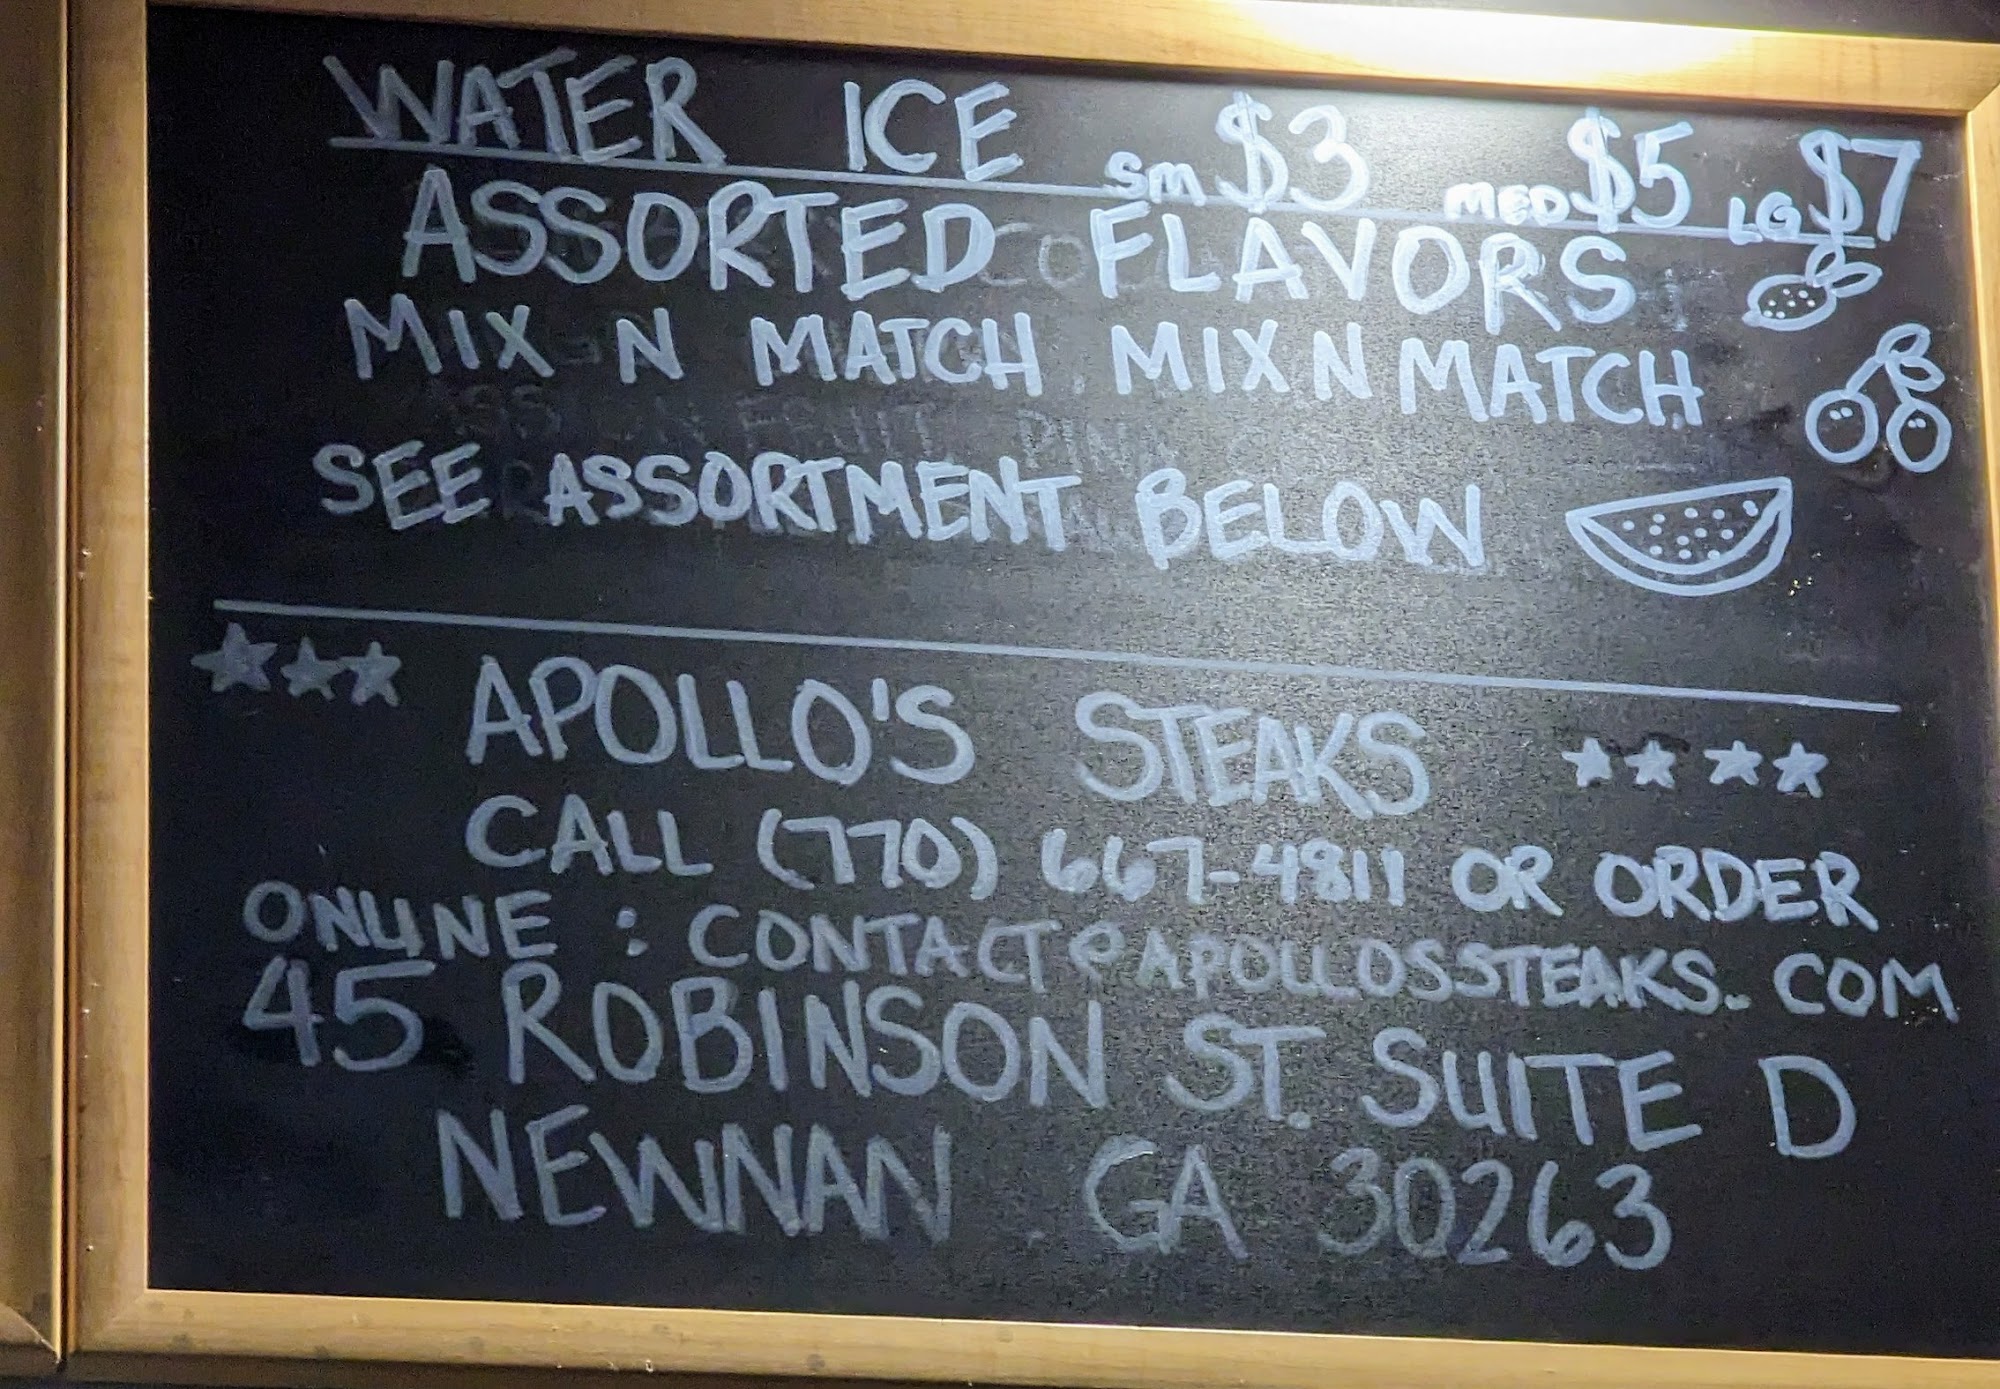 WATER ICE SM $3 MED $5 LG $7
ASSORTED FLAVORS
MIX N MATCH MIX N MATCH
SEE ASSORTMENT BELOW
APOLLO'S STEAKS
CALL (770) 667-4811 OR ORDER
ONLINE : CONTACT@APOLLOSSTEAKS.COM
45 ROBINSON ST. SUITE D
NEWNAN GA 30263